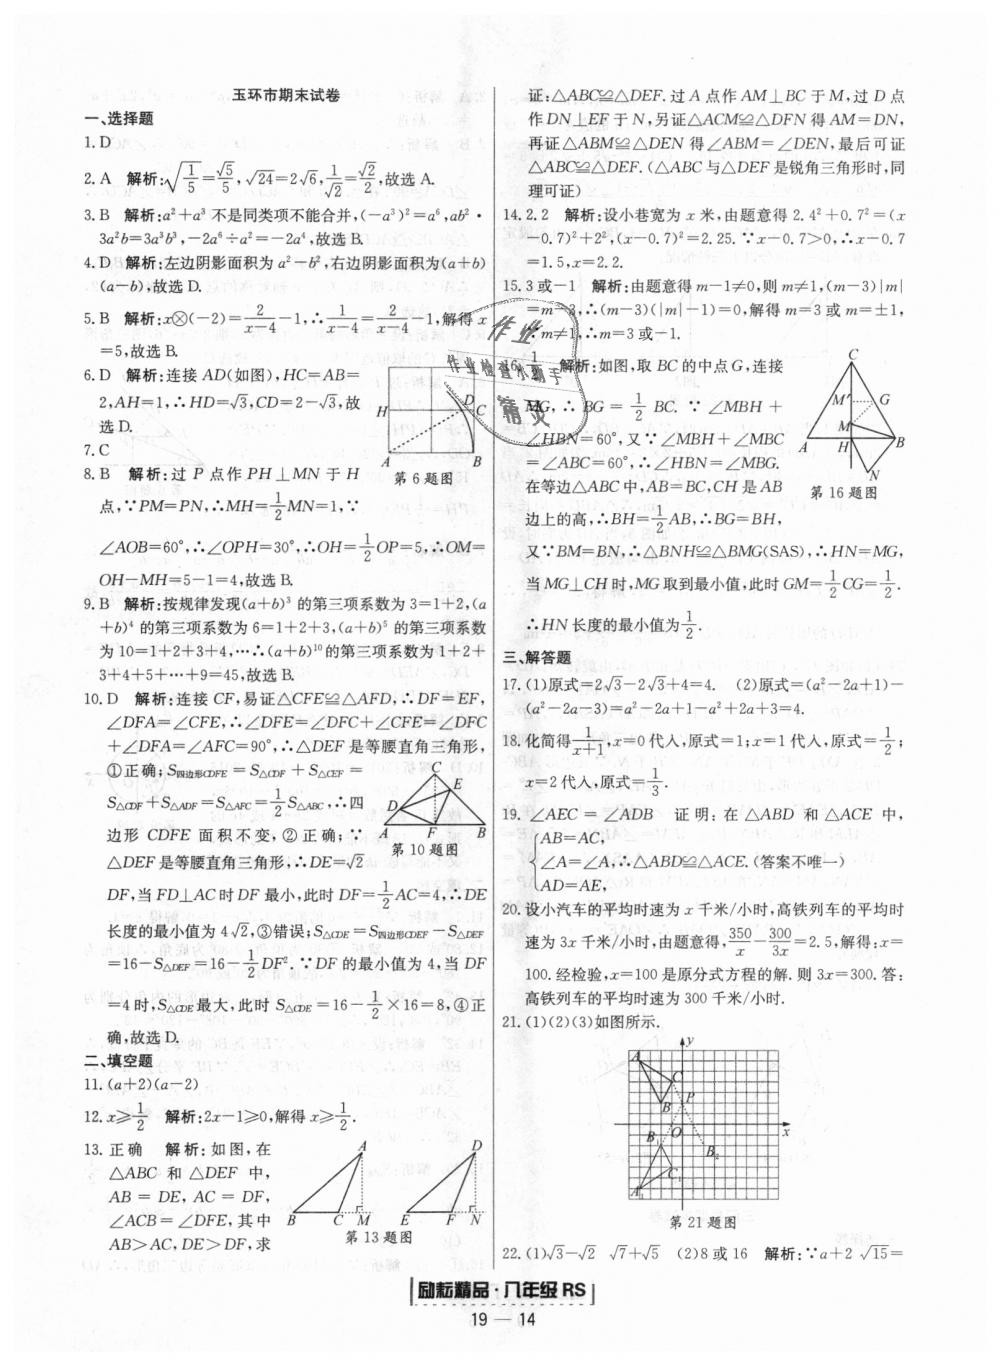 玉环市期末试卷
一、选择题
1. D
2. A　解析:√(1/5)=√5/5,√24=2√6,1/√2=√2/2,故选 A.
3. B　解析:a²+a³ 不是同类项不能合并,(-a³)²=a⁶,ab²·
3a²b=3a³b³,-2a⁶÷a²=-2a⁴,故选 B.
4. D　解析:左边阴影面积为 a²-b²,右边阴影面积为(a+b)
(a-b),故选 D.
5. B　解析:x⊗(-2)=2/(x-4)-1,∴1/(x-4)=2/(x-4)-1,解得 x
=5,故选 B.
6. D　解析:连接 AD(如图),HC=AB=
2,AH=1,∴HD=√3,CD=2-√3,故
选 D.
H D C A B
第 6 题图
7. C
8. B　解析:过 P 点作 PH⊥MN 于 H
点,∵PM=PN,∴MH=1/2MN=1,∵
∠AOB=60°,∴∠OPH=30°,∴OH=1/2OP=5,∴OM=
OH-MH=5-1=4,故选 B.
9. B　解析:按规律发现(a+b)³ 的第三项系数为 3=1+2,(a
+b)⁴ 的第三项系数为 6=1+2+3,(a+b)⁵ 的第三项系数
为 10=1+2+3+4,…∴(a+b)¹⁰的第三项系数为 1+2+
3+4+5+…+9=45,故选 B.
10. D　解析:连接 CF,易证△CFE≌△AFD,∴DF=EF,
∠DFA=∠CFE,∴∠DFE=∠DFC+∠CFE=∠DFC
+∠DFA=∠AFC=90°,∴△DEF 是等腰直角三角形,
①正确;S四边形CDFE=S△CDF+S△CEF=
S△CDF+S△ADF=S△AFC=1/2S△ABC,∴四
边形 CDFE 面积不变,②正确;∵
△DEF 是等腰直角三角形,∴DE=√2
C E D A F B
第 10 题图
DF,当 FD⊥AC 时 DF 最小,此时 DF=1/2AC=4,∴DE
长度的最小值为 4√2,③错误;S△CDE=S四边形CDEF-S△DEF
=16-S△DEF=16-1/2DF².∵DF 的最小值为 4,当 DF
=4 时,S△CDE最大,此时 S△CDE=16-1/2×16=8,④正
确,故选 D.
二、填空题
11. (a+2)(a-2)
12. x≥1/2　解析:2x-1≥0,解得 x≥1/2.
13. 正确　解析:如图,在
△ABC 和 △DEF 中,
AB = DE, AC = DF,
∠ACB=∠DFE,其中
AB>AC,DE>DF,求
A D B C M E F N
第 13 题图
证:△ABC≌△DEF.过 A 点作 AM⊥BC 于 M,过 D 点
作 DN⊥EF 于 N,另证△ACM≌△DFN 得 AM=DN,
再证△ABM≌△DEN 得∠ABM=∠DEN,最后可证
△ABC≌△DEF.(△ABC 与△DEF 是锐角三角形时,同
理可证)
14. 2.2　解析:设小巷宽为 x 米,由题意得 2.4²+0.7²=(x
-0.7)²+2²,(x-0.7)²=2.25.∵x-0.7>0,∴x-0.7
=1.5,x=2.2.
15. 3 或-1　解析:由题意得 m-1≠0,则 m≠1,(m-3)|m|
=m-3,∴(m-3)(|m|-1)=0,解得 m=3 或 m=±1,
∵m≠1,∴m=3 或-1.
16. 1/2　解析:如图,取 BC 的中点 G,连接
MG,∴BG=1/2BC.∵∠MBH+
∠HBN=60°,又∵∠MBH+∠MBC
=∠ABC=60°,∴∠HBN=∠MBG.
在等边△ABC 中,AB=BC,CH 是 AB
C M′ G M A H B N
第 16 题图
边上的高,∴BH=1/2AB,∴BG=BH,
又∵BM=BN,∴△BNH≌△BMG(SAS),∴HN=MG,
当 MG⊥CH 时,MG 取到最小值,此时 GM=1/2CG=1/2.
∴HN 长度的最小值为1/2.
作业
作业检查小助手
精灵
三、解答题
17. (1)原式=2√3-2√3+4=4.　(2)原式=(a²-2a+1)-
(a²-2a-3)=a²-2a+1-a²+2a+3=4.
18. 化简得1/(x+1),x=0 代入,原式=1;x=1 代入,原式=1/2;
x=2 代入,原式=1/3.
19. ∠AEC = ∠ADB　证明:在 △ABD 和 △ACE 中,
{AB=AC,
∠A=∠A,∴△ABD≌△ACE.(答案不唯一)
AD=AE,
20. 设小汽车的平均时速为 x 千米/小时,高铁列车的平均时
速为 3x 千米/小时,由题意得,350/x-300/3x=2.5,解得:x=
100.经检验,x=100 是原分式方程的解.则 3x=300.答:
高铁列车的平均时速为 300 千米/小时.
21. (1)(2)(3)如图所示.
y A C B P O x B₁ B₂ C₁ A₁
第 21 题图
22. (1)√3-√2　√7+√5　(2)8 或 16　解析:∵a+2√15=
励耘精品·八年级 RS
19 — 14